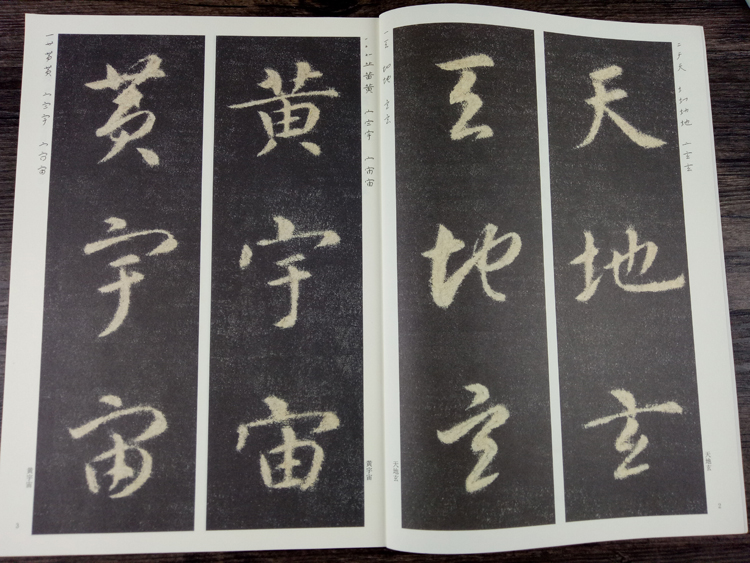 天地玄
天地玄
黄宇宙
黄宇宙
天地玄
2
天地玄
黄宇宙
黄宇宙
3